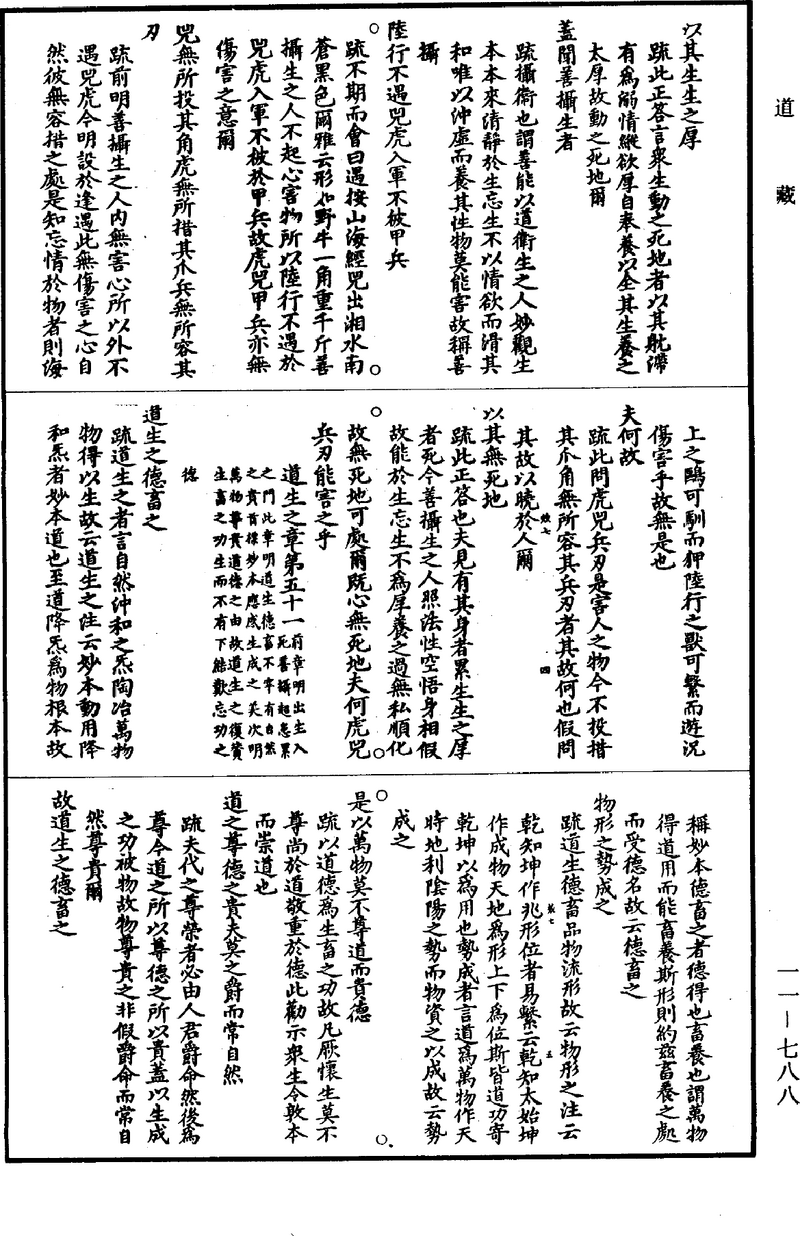 道藏
以其生生之厚
疏此正答言衆生動之死地者以其躭滯
有爲溺情縱欲厚自奉養以全其生養之
太厚故動之死地爾
蓋聞善攝生者
疏攝衛也謂善能以道衛生之人妙觀生
本本來清靜於生忘生不以情欲而滑其
和唯以沖虛而養其性物莫能害故稱善
攝
陸行不遇兕虎入軍不被甲兵
疏不期而會曰遇按山海經兕出湘水南
蒼黑色爾雅云形如野牛一角重千斤善
攝生之人不起心害物所以陸行不遇於
兕虎入軍不被於甲兵故虎兕甲兵亦無
傷害之意爾
兕無所投其角虎無所措其爪兵無所容其
刃
疏前明善攝生之人内無害心所以外不
遇兕虎今明設於逢遇此無傷害之心自
然彼無容措之處是知忘情於物者則海
上之鷗可馴而狎陸行之獸可繫而遊況
傷害乎故無是也
夫何故
疏此問虎兕兵刃是害人之物今不投措
其爪角無所容其兵刃者其故何也假問
其故以曉於人爾
以其無死地
疏此正答也夫見有其身者累生生之厚
者死今善攝生之人照法性空悟身相假
故能於生忘生不爲厚養之過無私順化
故無死地可處爾既心無死地夫何虎兕
兵刃能害之乎
道生之章第五十一
前章明出生入
死善攝起忘累
之門此章明道生德畜不宰有自然
之貴首標妙本應感生成之美次明
萬物尊貴道德之由故道生之復賛
生畜之功生而不有下結歎忘功之
德
道生之德畜之
疏道生之者言自然沖和之炁陶冶萬物
物得以生故云道生之注云妙本動用降
和炁者妙本道也至道降炁爲物根本故
稱妙本德畜之者德得也畜養也謂萬物
得道用而能畜養斯形則約兹畜養之處
而受德名故云德畜之
物形之勢成之
疏道生德畜品物流形故云物形之注云
乾知坤作兆形位者易繫云乾知太始坤
作成物天地爲形上下爲位斯皆道功寄
乾坤以爲用也勢成者言道爲萬物作天
時地利陰陽之勢而物資之以成故云勢
成之
是以萬物莫不尊道而貴德
疏以道德爲生畜之功故凡厥懷生莫不
尊尚於道敬重於德此勸示衆生令敦本
而崇道也
道之尊德之貴夫莫之爵而常自然
疏夫代之尊榮者必由人君爵命然後爲
尊今道之所以尊德之所以貴蓋以生成
之功被物故物尊貴之非假爵命而常自
然尊貴爾
故道生之德畜之
一一—七八八